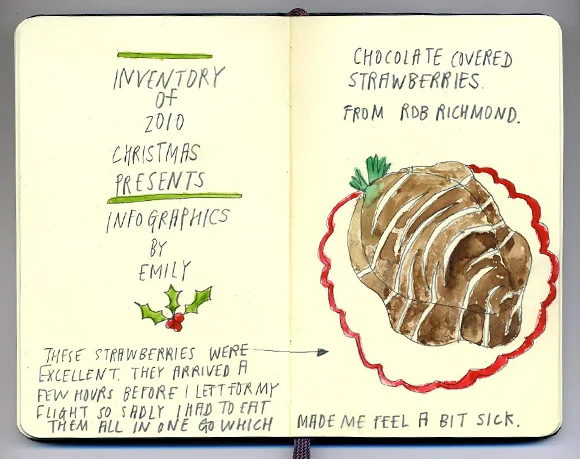 INVENTORY
OF
2010
CHRISTMAS
PRESENTS
INFOGRAPHICS
BY
EMILY
CHOCOLATE COVERED
STRAWBERRIES.
FROM ROB RICHMOND.
THESE STRAWBERRIES WERE
EXCELLENT. THEY ARRIVED A
FEW HOURS BEFORE I LEFT FOR MY
FLIGHT SO SADLY I HAD TO EAT
THEM ALL IN ONE GO WHICH MADE ME FEEL A BIT SICK.